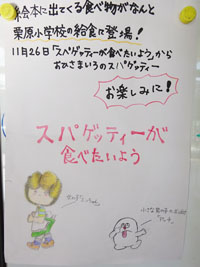 絵本に出てくる食べ物がなんと
栗原小学校の給食に登場！
11月26日「スパゲッティーが食べたいよう」から
おひさまいろのスパゲッティー
お楽しみに！
スパゲッティーが
食べたいよう